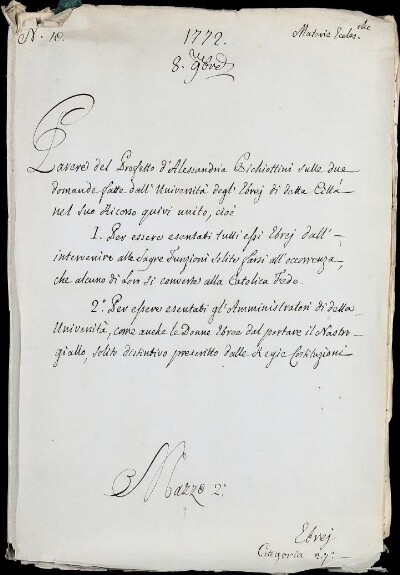 N. 10.
1772.
Materie Eccles.che
8. 9bre
Parere del Prefetto d'Alessandria Pichiottini sulle due
domande fatte dall'Università degl'Ebrej di detta Città
nel suo Ricorso quivi unito, cioè
1. Per essere esentati tutti essi Ebrej dall'
intervenire alle Sagre Funzioni solite farsi all'occorrenza,
che alcuno di Loro si converte alla Catolica Fede.
2.° Per essere esentati gl'Amministratori di detta
Università, come anche le Donne Ebree dal portare il Nastro
giallo, solito distintivo prescritto dalle Regie Costituzioni
Mazzo 2.°
Ebrej
Categoria 37.a